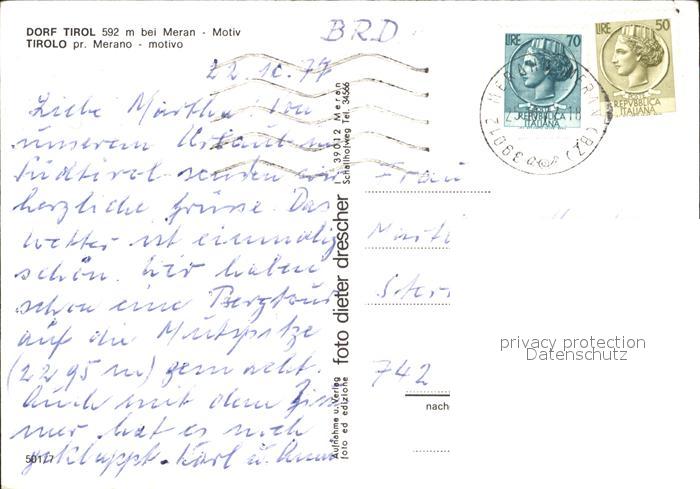 DORF TIROL 592 m bei Meran - Motiv
TIROLO pr. Merano - motivo
BRD
22.10.77
Liebe Martha! Von
unserem Urlaub in
Südtirol senden wir
herzliche Grüsse. Das
Wetter ist einmalig
schön. Wir haben
schon eine Bergtour
auf die Mutspitze
(2295 m) gemacht.
Auch mit dem Zim
mer hat es noch
geklappt. Karl u.
50177
Aufnahme u. Verlag
foto ed edizione
foto dieter drescher
I - 39012 Meran
Schallhofweg Tel. 34566
LIRE 70
REPVBBLICA
ITALIANA
LIRE 50
REPVBBLICA
ITALIANA
39012 MERAN (BZ)
Frau
742
nach
privacy protection
Datenschutz